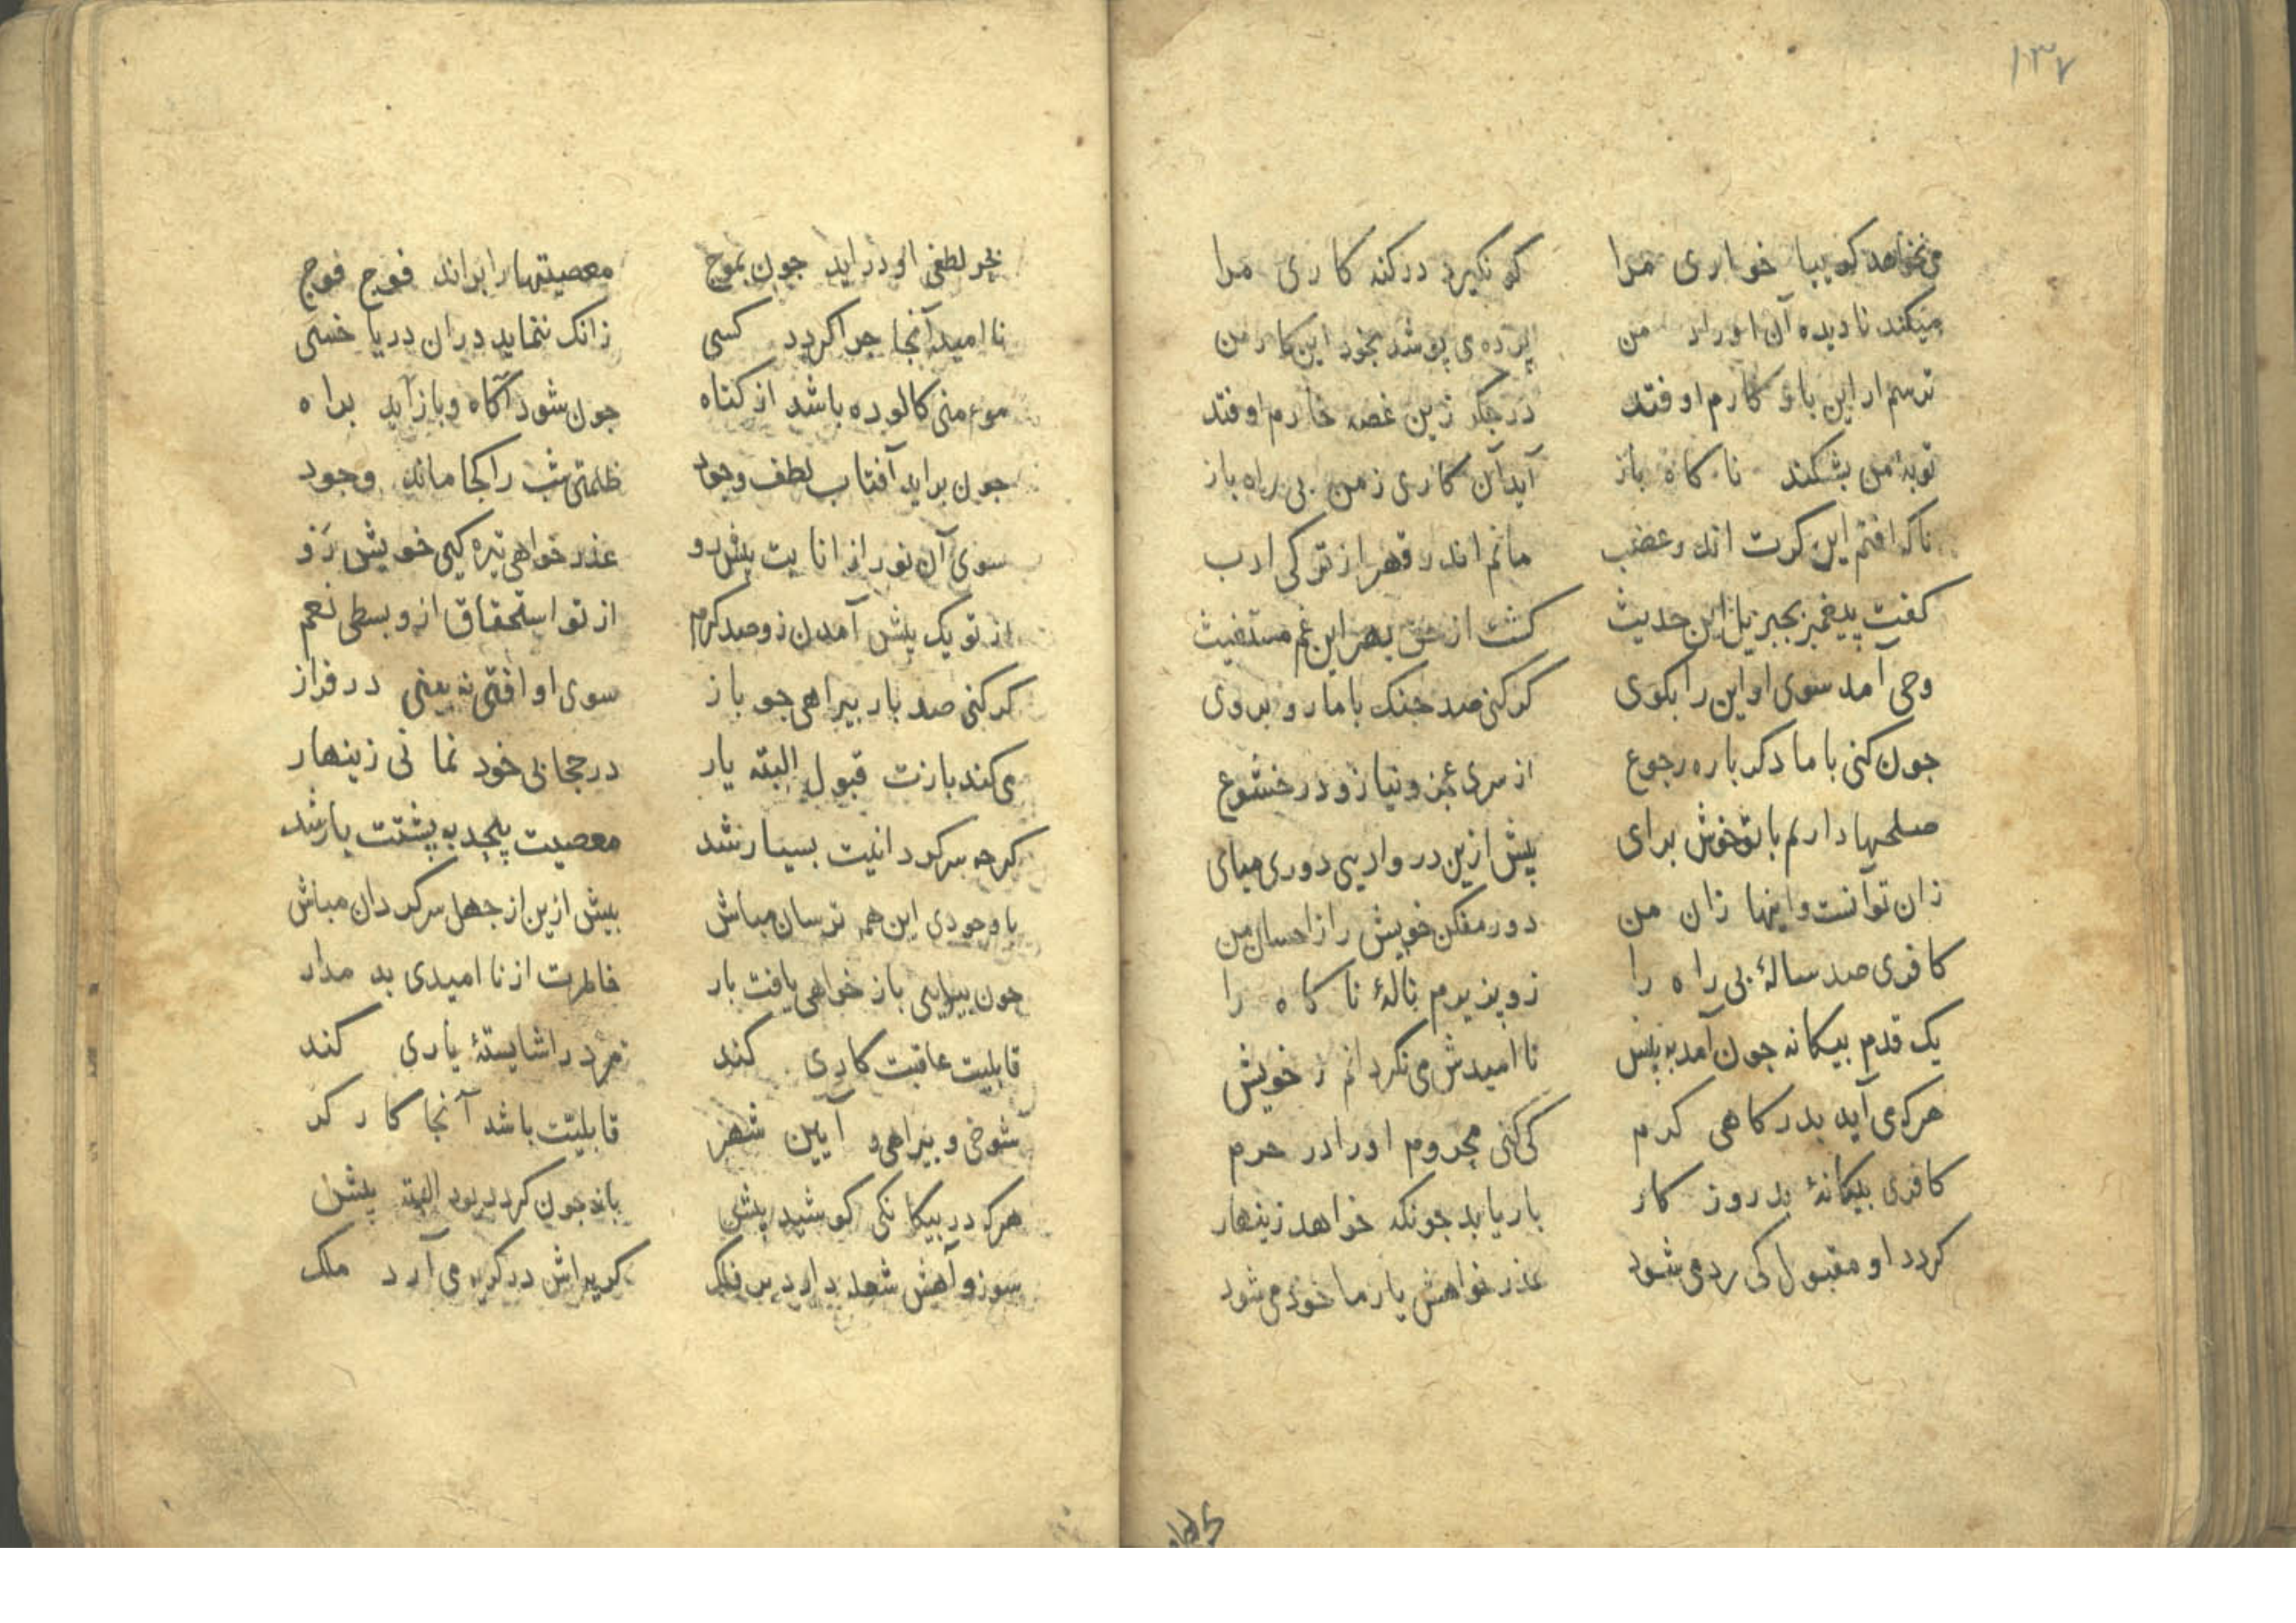 ۱۳۷
می‌نخواهد کو بیا خواری مرا کو نکیرد در کنه کاری مرا
میکند نادیده آن من پرده می پوشد بخود این کار من
ترسم ار این بار کارم اوفتد در جکر زین غصه خارم اوفتد
توبهٔ من بشکند ناکاه باز آید آن کاری ز من بی راه باز
ناکه افتم این کرت اندر غضب مانم اندر قهر از ترکی ادب
کفت پیغمبر بجبریل این حدیث کشت از حق بهر این غم مستغیث
وحی آمد سوی او این را بکوی کر کنی صد جنک با ما رو بروی
جون کنی با ما دکر باره رجوع از سری عجز و نیاز و در خشوع
صلحها دارم با تو خوش برای پیش ازین در وادیی دوری میای
زان تو آنست و اینها زان من دور مفکن خویش را ز احسان من
کافری صد سالهٔ بی راه را زو پذیرم نالهٔ ناکاه را
یک قدم بیکانه جون آمد به پیش نا امیدش می نکردانم ز خویش
هرکه می آید بدرکاهی کرم کی کنی محروم او را در حرم
کافری بیکانهٔ بد روز کار بار یابد جونکه خواهد زینهار
کردد او مقبول کی رد می شود عذر خواهش یار ما خود می شود
بحر لطفی او در اید جون بموج معصیتها را براند فوج فوج
نا امید آنجا جرا کردد کسی زانک ننماید دران دریا خسی
موءمنی کالوده باشد از کناه جون شود آکاه و باز آید براه
جون براید آفتاب لطف وجود ظلمتی شب را کجا ماند وجود
سوی آن نور از انابت پیش رو عذر خواهی تیره کیی خویش زو
از تو یک پیش آمدن زو صد کرم از تو استحقاق ازو بسطی نعم
کر کنی صد بار بیراهی جو باز سوی او افتی نه یعنی در فراز
می کند بازت قبول البته یار در حجابی خود نمانی زینهار
کرجه سرکردانیت بسیار شد معصیت پیجد به پشتت یار شد
با وجودی این هم ترسان مباش بیش ازین از جهل سرکردان مباش
جون بیایی باز خواهی یافت بار خاطرت از نا امیدی بد مدار
قابلیت عاقبت کاری کند مرد را شایستهٔ یاری کند
شوخی و بیراهی و آیین شهر قابلیت باشد آنجا کار کر
هرکه در بیکانکی کوشید پیش جون کردد بود البته پیش
سوز و آهش شعله دارد بر فلک کریه‌اش در کریه می آرد ملک